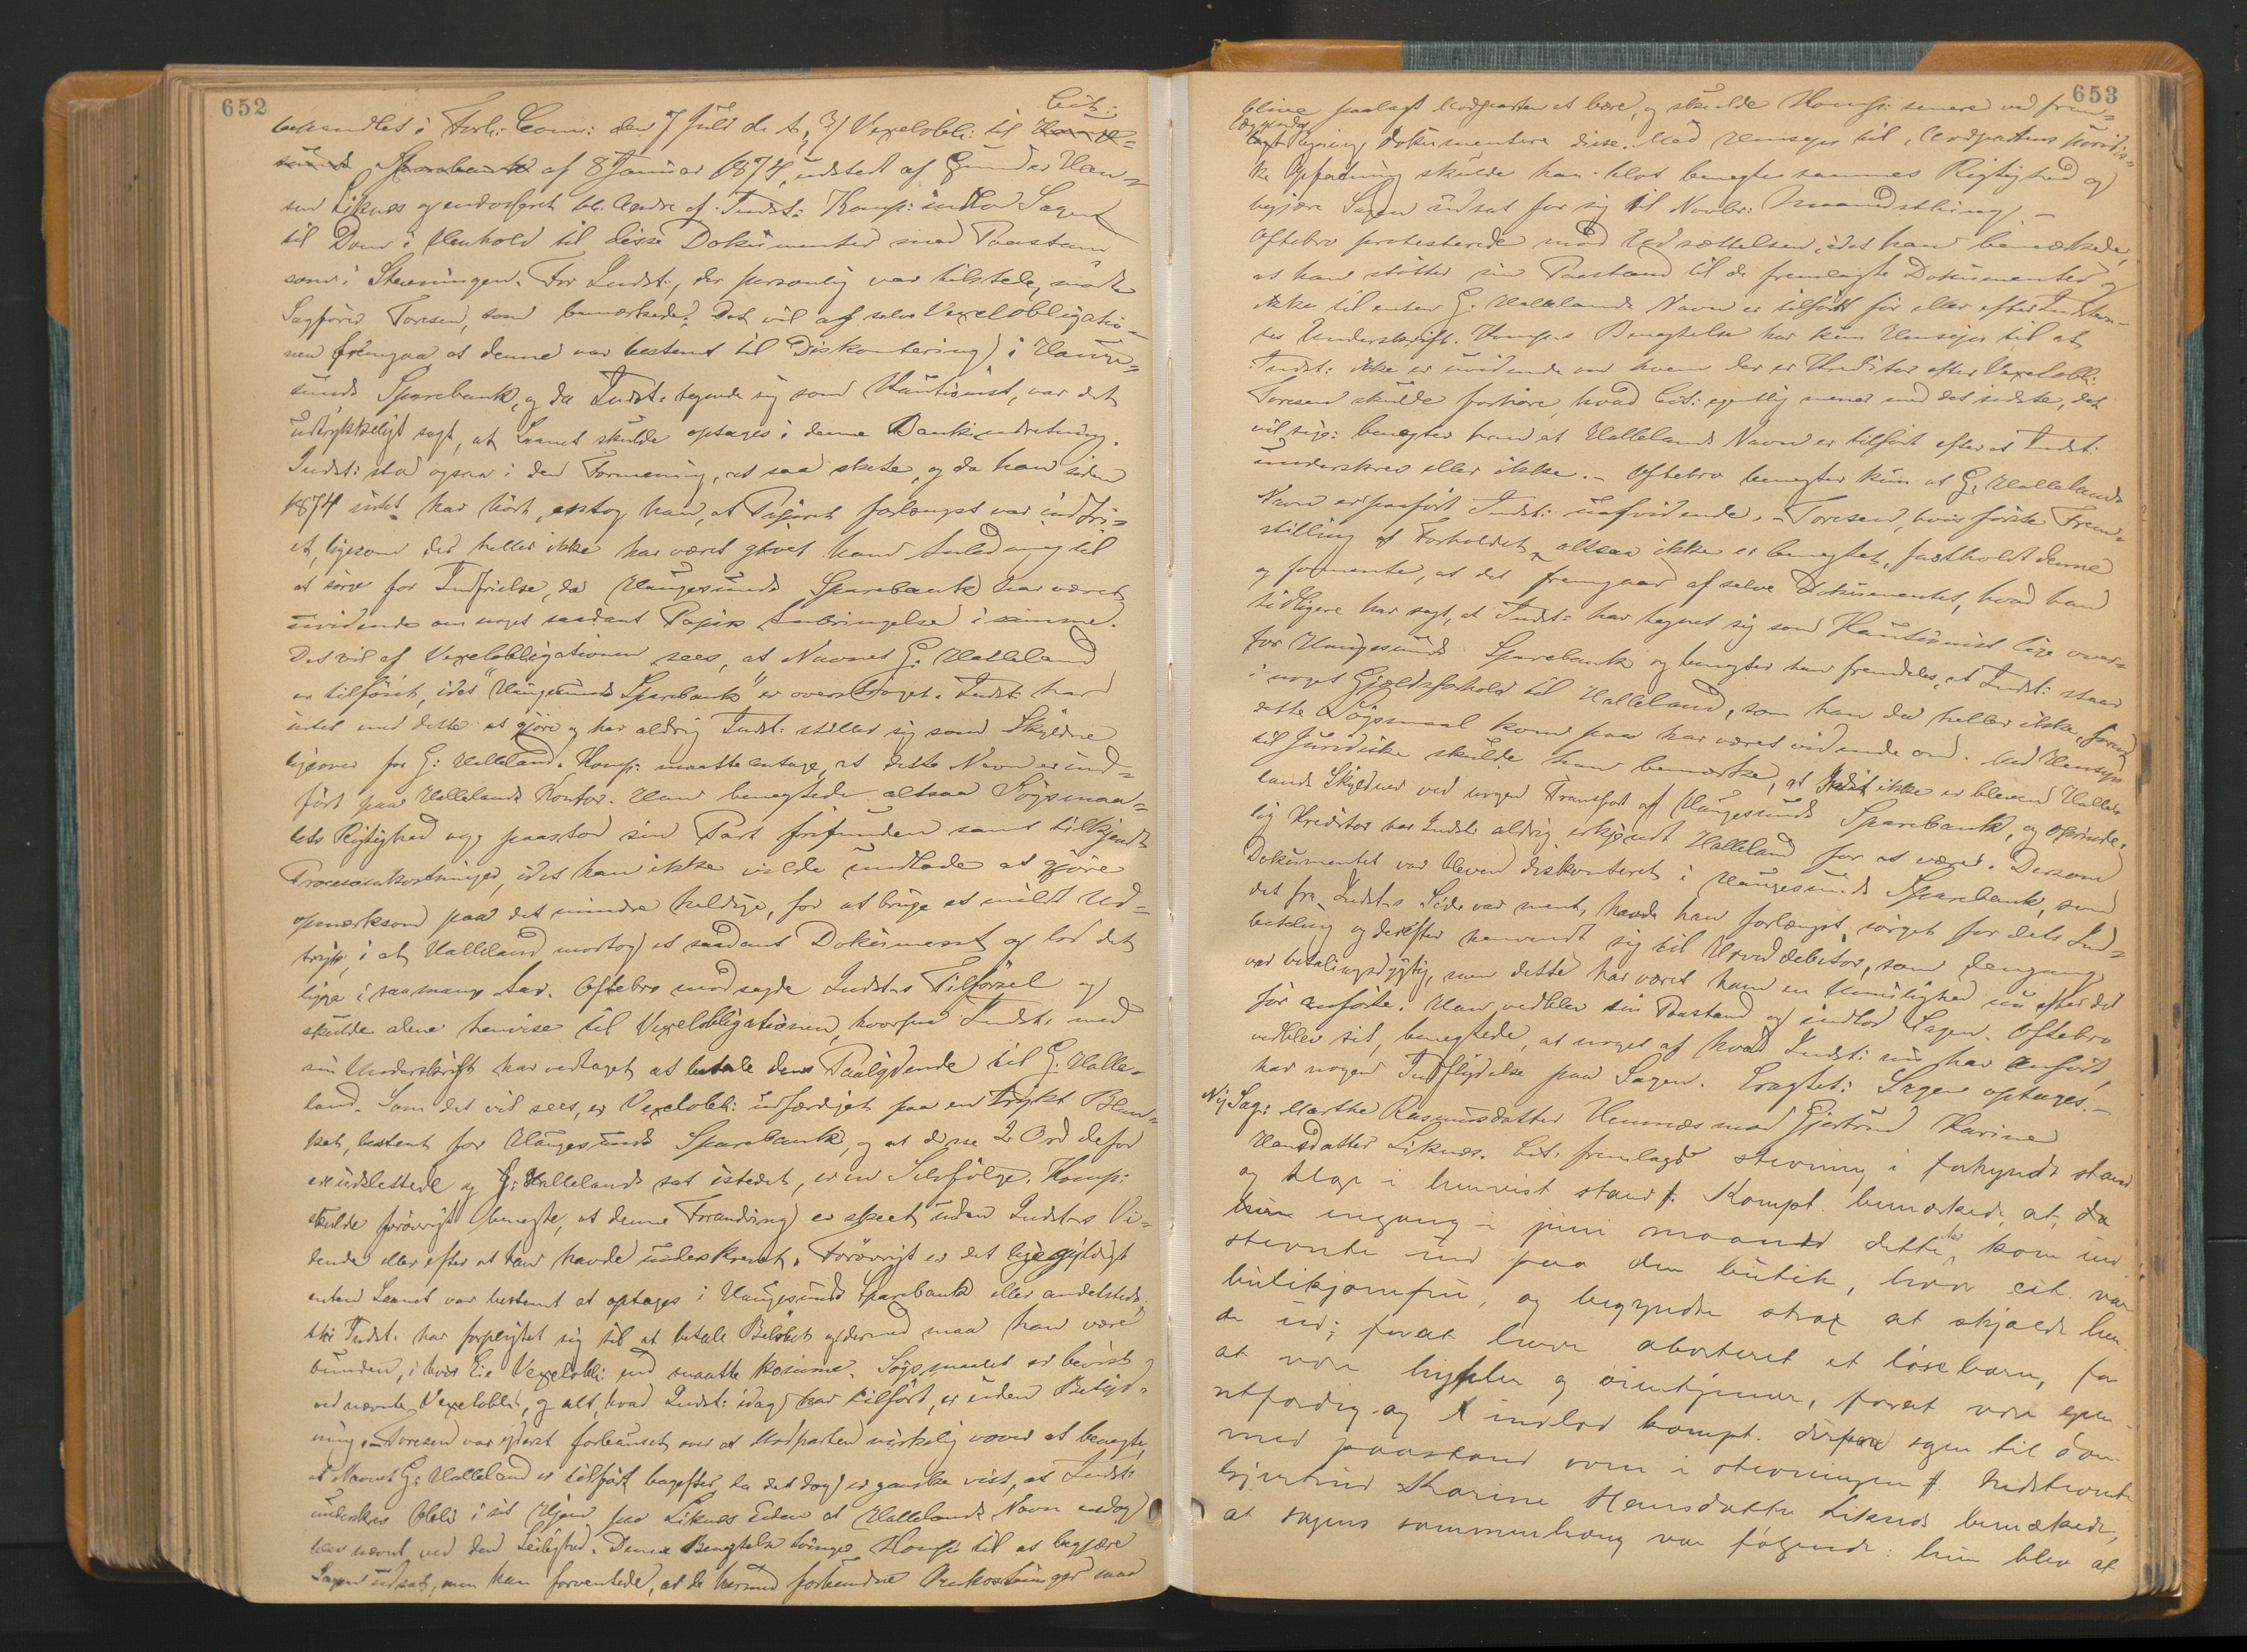 652
Cit:
behandlet i Forl: Com: den 7 Juli d. A, 3) Vexelobli: til Hauge=
sunds Sparebank af 8 Januar 1874, udstedt af Gunder Han=
sen Liknes og endosseret bl. Andre af Indst: Komp: indlod Sagen
til Dom i Henhold til disse Dokumenter med Paastand
som i Stevningen. For Indst:, der personlig var tilstede, mødte
Sagfører Toresen, som bemærkede: Det vil af selve Vexelobligatio=
nen fremgaa at denne var bestemt til Diskontering i Hauge=
sunds Sparebank, og da Indst: tegnede sig som Kautionist, var det
udtrykkeligt sagt, at Laanet skulde optages i denne Bankindretning.
Indst: stod ogsaa i den Formening, at saa skete, og da han siden
1874 intet har hørt, antog han, at Papiret forlængst var indfri=
et, ligesom der heller ikke har været givet ham Anledning til
at sørge for Indfrielse, da Haugesunds Sparebank har været
uvidende om noget saadant Papirs Anbringelse i samme.
Det vil af Vexelobligationen sees, at Navnet G. Halleland
er tilføiet, idet "Haugesunds Sparebank" er overstrøget. Indst: har
intet med dette at gjøre og har aldrig Indst: stillet sig som Skyldner
ligeover for G. Halleland. Komp: maatte antage, at dette Navn er ind=
ført paa Hallelands Kontor. Han benegtede altsaa Søgsmaa=
lets Rigtighed og paastod sin Part frifunden samt tilkjendt
Procesomkostninger, idet han ikke vilde undlade at gjøre
opmærksom paa det mindre heldige, for at bruge et mildt Ud=
tryk, i at Halleland modtog et saadant Dokument og lod det
ligge i saa mange Aar. Oftebro modsagde Indst:s Tilførsel og
skulde alene henvise til Vexelobligationen, hvorpaa Indst: med
sin Underskrift har vedtaget at betale dens Paalydende til G. Halle=
land. Som det vil sees, er Vexelobli: udfærdiget paa en trykt Blan=
ket, bestemt for Haugesunds Sparebank, og at disse 2 Ord derfor
ere udslettede og G. Hallelands sat istedet, er en Selvfølge. Komp:
skulde forøvrigt benegte, at denne Forandring er skeet uden Indst:s Vi=
dende eller efter at han havde underskrevet. Forøvrigt er det ligegyldigt
enten Laanet var bestemt at optages i Haugesunds Sparebank eller andetsteds;
thi Indst. har forpligtet sig til at betale Beløbet og dermed maa han være
bunden, i hvis Eie Vexelobli: end maatte komme. Søgsmaalet er bevist
ved nævnte Vexelobli:, og alt, hvad Indst: idag har tilført, er uden Betyd=
ning. Toresen var yderst forbauset over at Modparten virkelig vover at benegte,
at Navnet G. Halleland er tilføiet bagefter, da det dog er ganske vist, at Indst:
underskrev Oblis i sit Hjem paa Liknes Uden at Hallelands Navn endog
blev nævnt ved den Leilighed. Denne Benegtelse tvinger Komp: til at begjære
Sagen udsat, men han forventede, at de hermed forbundne Omkostninger maa
653
blive paalagt Modparten at bære, og skulde Komp: senere ved frem=
læggende
Regning dokumentere disse. Med Hensyn til Modpartens juridis=
ke Opfatning skulde han blot benegte sammes Rigtighed og
begjære Sagen udsat for sig til Novbr: Maanedsthing. -
Oftebro protesterede mod Udsættelsen, idet han bemærkede,
at han støtter sin Paastand til de fremlagte Dokumenter og
ikke til enten G. Hallelands Navn er tilført før eller efter Indstevn=
tes Underskrift. Komp:s Benegtelse har kun Hensyn til at
Indst: ikke er uvidende om hvem der er Kreditor efter Vexelobli:
Toresen skulde forhøre, hvad Cit: egentlig mener med det sidste, det
vil sige: benegter han at Hallelands Navn er tilført efter at Indst:
underskrev eller ikke. - Oftebro benegter kun at G. Hallelands
Navn er paaført Indst: uafvidende. - Toresen, hvis første Frem=
stilling af Forholdet altsaa ikke er benegtet, fastholdt denne
og formente, at det fremgaar af selve Dokumentet, hvad han
tidligere har sagt, at Indst: har tegnet sig som Kautionist lige over=
for Haugesunds Sparebank og benegter han fremdeles, at Indst: staar
i noget Gjældsforhold til Halleland, som han da heller ikke, førend
dette Søgsmaal kom paa har været vidende om. Med Hensyn
til Juridiske skulde han bemærke, at Indst: ikke er bleven Halle=
lands Skyldner ved nogen Transport af Haugesunds Sparebank, og oprinde=
lig Kreditor har Indst: aldrig erkjendt Halleland for at være. Dersom
Dokumentet var bleven diskonteret i Haugesunds Sparebank, som
det fra Indst:s Side var ment, havde han forlængst sørget for dets Ind=
betaling og derefter henvendt sig til Hoveddebitor, som dengang
var betalingsdygtig, men dette har været ham en Umulighed nu efter det
før anførte. Han vedblev sin Paastand og indlod Sagen. Oftebro
vedblev sit, benegtede, at noget af hvad Indst: nu har anført,
har nogen Indflydelse paa Sagen. Eragtet: Sagen optages. -
Ny Sag: Marthe Rasmusdatter Hemnæs mod Gjertrud Karine
Hansdatter Liknes. Cit. fremlagde stevning i forkyndt stand
og klage i henvist stand. Kompt. bemærkede, at, da
hun engang i juni maaned dette kom ind
stevnte ind paa den butik, hvor cit. var
butikjomfru, og begyndte strax at skjælde hen
de ud; forat have aborteret et løsebarn, for
at være hykler og øientjener, forat være
og indlod kompt. derpaa sagen til dom
med paastand som i stevningen. Indstevnte
Gjertrud Karine Hansdatter Liknes bemærkede,
at sagens sammenhæng var følgende: hun blev at